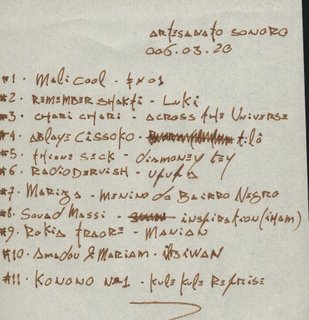 ARTESANATO SONORO
006.03.20
#1 · Mali Cool - FN01
#2 · REMEMBER SHAKTI - LUKI
#3 · CHARI CHARI - ACROSS THE UNIVERSE
#4 · ABLAYE CISSOKO - tilô
#5 · THIONE SECK - DIAMONEY TEY
#6 · RADIODERVISH - UPUPA
#7 · MARIZA - MENINO DO BAIRRO NEGRO
#8 · SOUAD MASSI - INSPIRATION (IHAM)
#9 · ROKIA TRAORE - MANIAN
#10 · AMADOU & MARIAM -
#11 · KONONO Nº1 - KULE KULE REPRISE